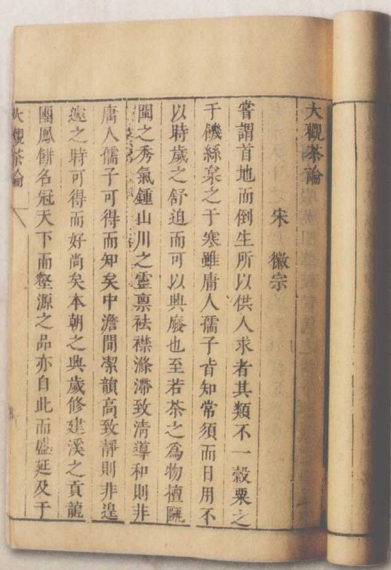 大觀茶論
宋 徽宗
嘗謂首地而倒生所以供人求者其類不一穀粟之
于饑絲枲之于寒雖庸人孺子皆知常須而日用不
以時歲之舒迫而可以興廢也至若茶之為物擅甌
閩之秀氣鍾山川之靈禀祛襟滌滯致清導和則非
庸人孺子可得而知矣中澹閒潔韻高致靜則非遑
遽之時可得而好尚矣本朝之興歲修建溪之貢龍
團鳳餅名冠天下而壑源之品亦自此而盛延及于
大觀茶論